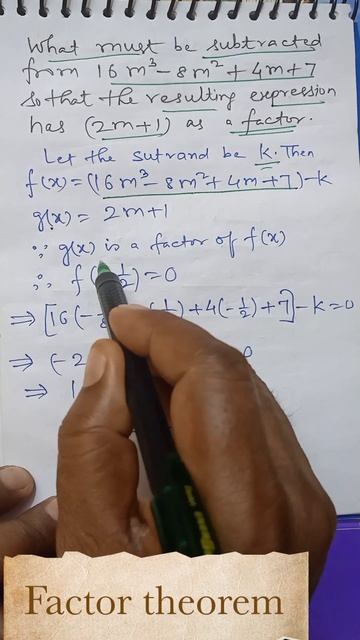 What must be subtracted
from 16m³ - 8m² + 4m + 7
so that the resulting expression
has (2m+1) as a factor.
Let the sutrand be k. Then
f(x) = (16m³ - 8m² + 4m + 7) - k
g(x) = 2m + 1
∵ g(x) is a factor of f(x)
∴ f( 1/2) = 0
⇒ [16(- +4(-1/2) + 7] - k = 0
⇒ (-2
⇒
Factor theorem